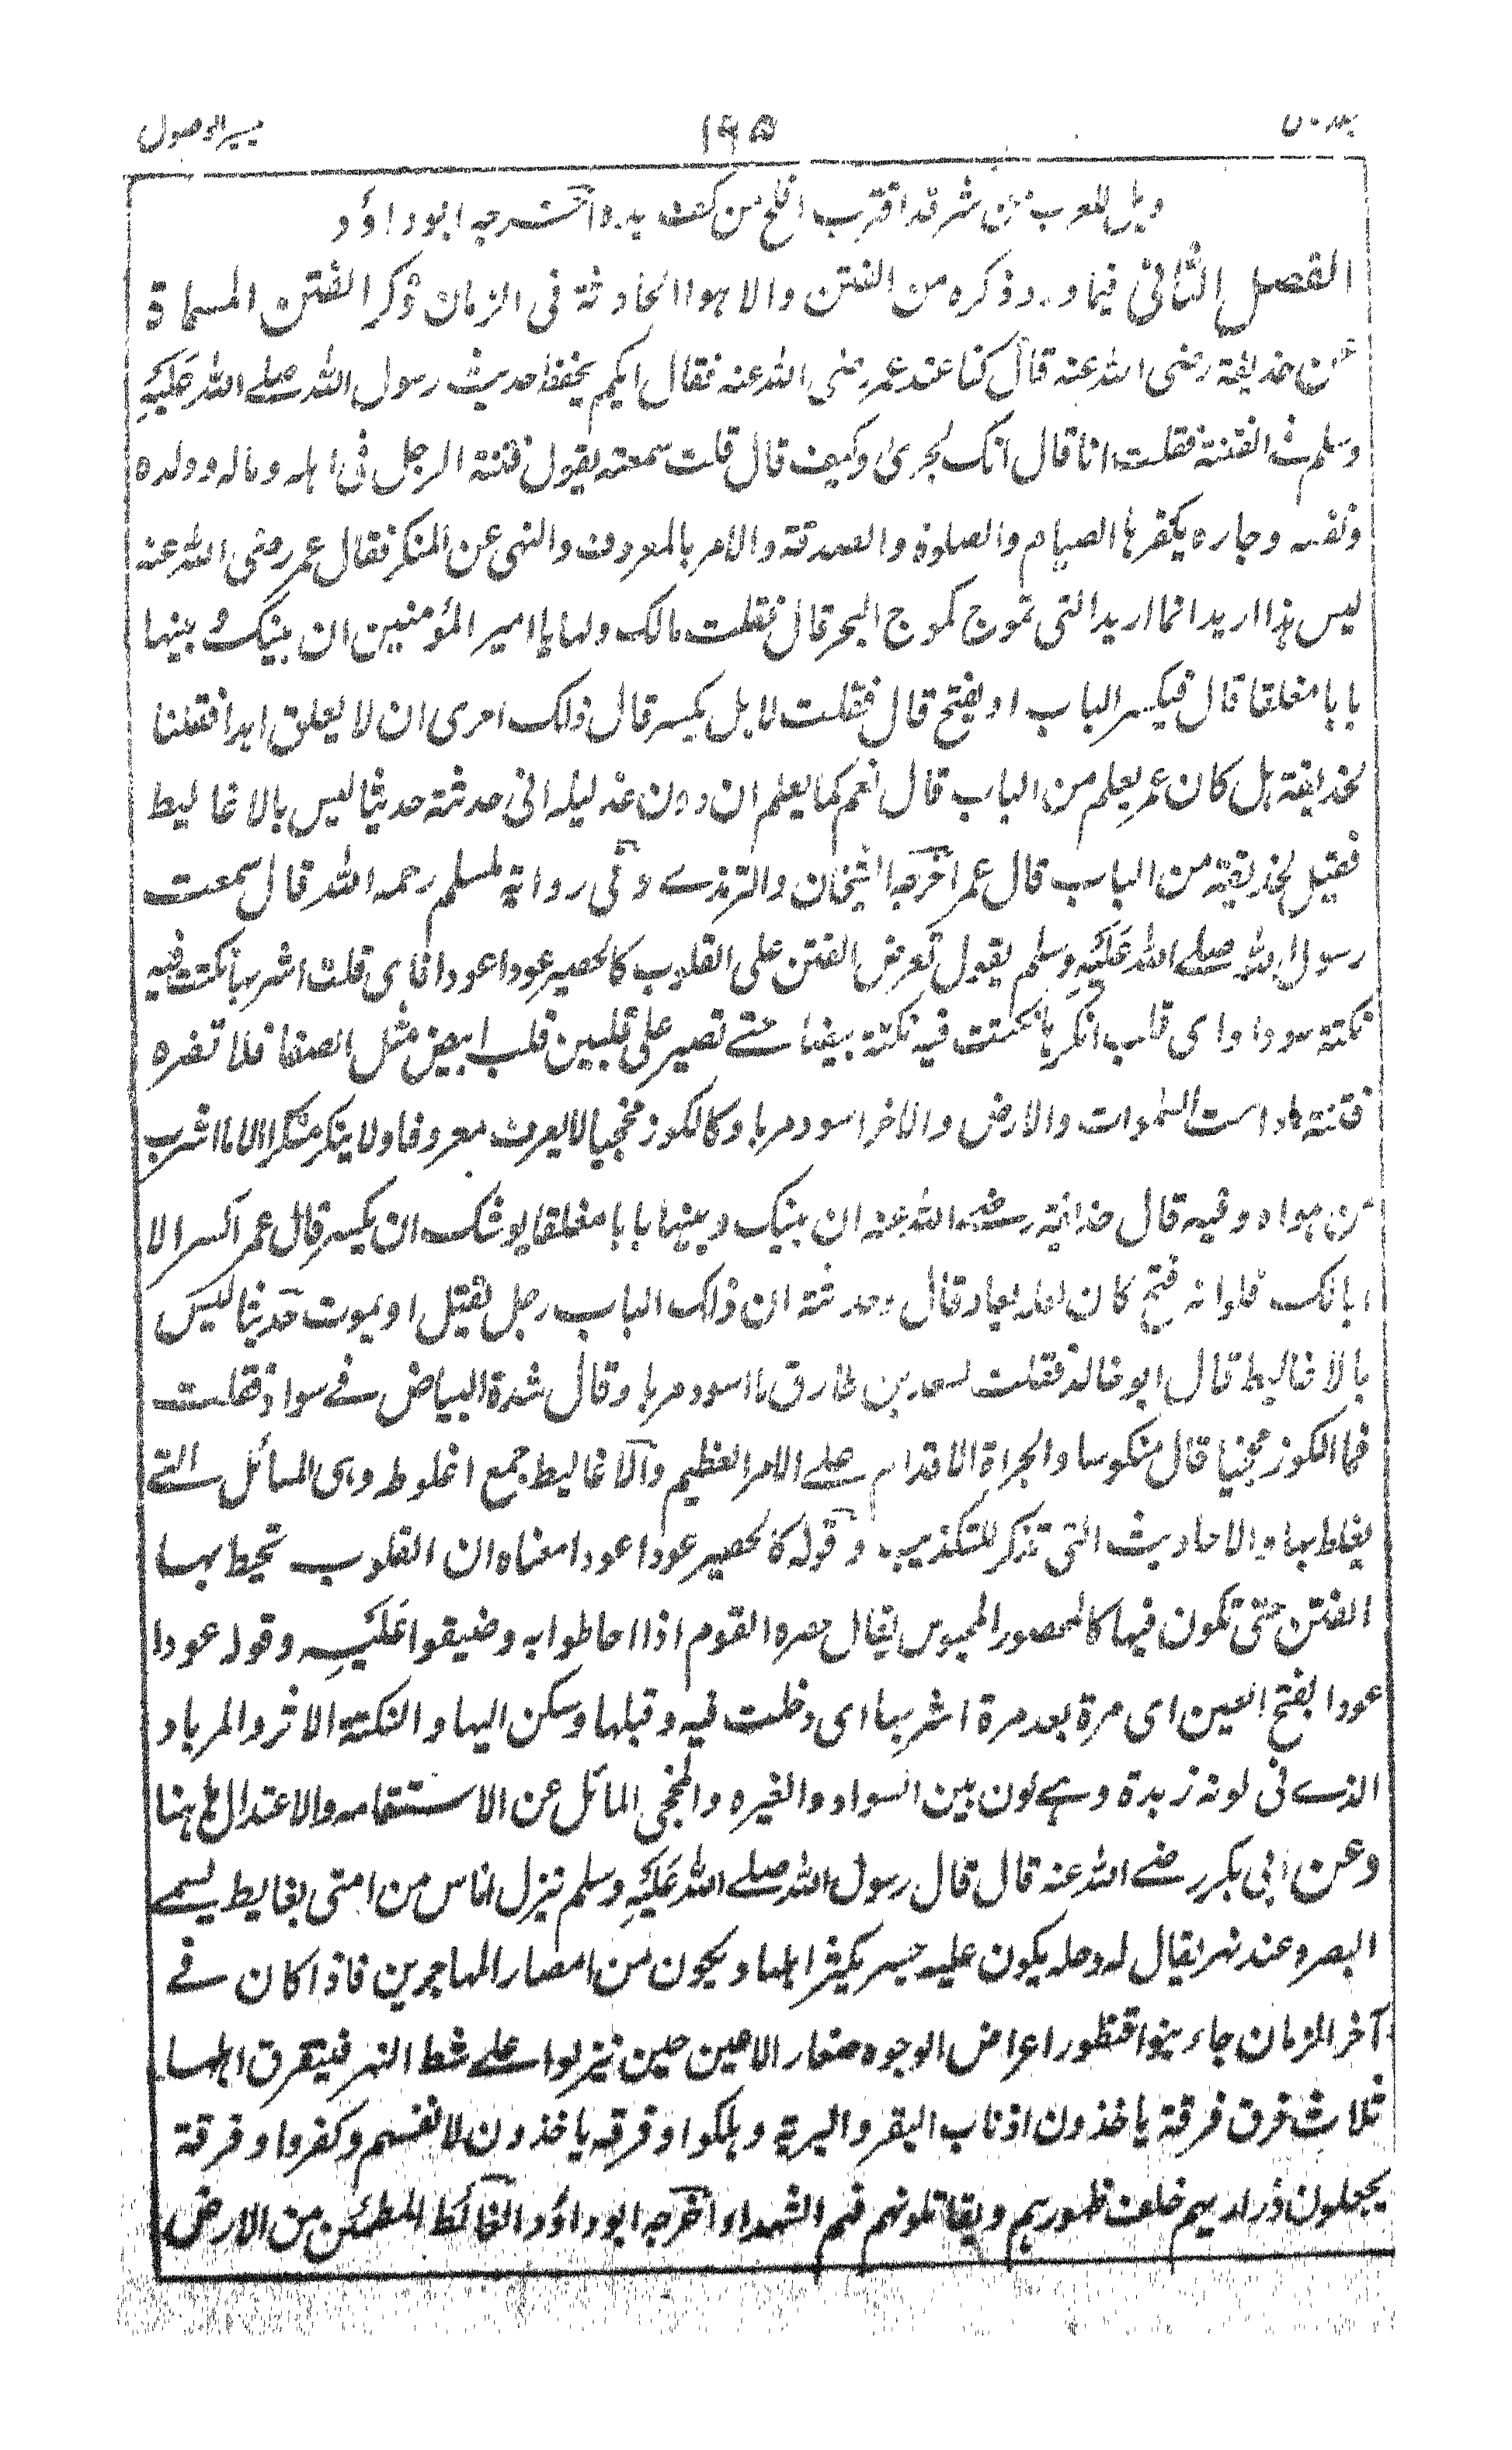 تيسير الوصول ١٩٥
ويل للعرب من شر قد اقترب افلح من كف يده اخرجه ابو داؤد
الفصل الثانی فيما ورد ذكره من الفتن والا هوا الحادثة فى الزمان ذكر الفتن المسماة
عن حذيفة رضى الله عنه قال كنا عند عمر رضى الله عنه فقال ايكم يحفظ حديث رسول الله صلے الله عَلَيْهِ
وسلم فى الفتنة فقلت انا قال انك لجرئ وكيف قال قلت سمعته يقول فتنة الرجل فى اهله وماله وولده
ونفسه وجاره يكفرها الصيام والصلوة والصدقة والامر بالمعروف والنهى عن المنكر فقال عمر رضى الله عنه
ليس هذا اريد انما اريد التى تموج كموج البحر قال فقلت مالك ولها يا امير المؤمنين ان بينك و بينها
بابا مغلقا قال فيكسر الباب او يفتح قال فقلت لا بل يكسر قال ذلك احرى ان لا يغلق ابدا فقلنا
لحذيفة هل كان عمر يعلم من الباب قال نعم كما يعلم ان دون غد ليله انى حدثته حديثا ليس بالاغاليط
فقيل لحذيفة من الباب قال عمر اخرجه الشيخان والترمذے وفى رواية لمسلم رحمه الله قال سمعت
رسول الله صلے الله عَلَيْهِ وسلم يقول تعرض الفتن على القلوب كالحصير عودا عودا فاى قلب اشربها نكتت فيه
نكتة سودا واى قلب انكرها نكتت فيه نكتة بيضا حتے تصير على قلبين قلب ابيض مثل الصفا فلا تضره
فتنة مادامت السموات والارض والاخر اسود مرباد كالكوز مجخيا لا يعرف معروفا ولا ينكر منكرا الا ما اشرب
من هواه وفيه قال حذيفة رضے الله عنه ان بينك وبينها بابا مغلقا يوشك ان يكسر قال عمر اكسرا لا
ابا لك فلو انه فتح كان لعله يعاد قال وحدثته ان ذلك الباب رجل يقتل او يموت حديثا ليس
بالاغاليط قال ابو خالد فقلت لسعد بن طارق ما اسود مرباد قال شدة البياض فے سواد فقلت
فما الكوز مجخيا قال منكوسا والجراة الاقدام علے الامر العظيم والاغاليط جمع اغلوطه وهى المسائل التے
يغلط بها والاحاديث التى تذكر للتكذيب وقوله كالحصير عودا عودا معناه ان القلوب تحيط بها
الفتن حتى تكون فيها كالمحصور المحبوس يقال حصره القوم اذا احاطوا به وضيقوا عَلَيْهِ وقوله عودا
عودا بفتح العين اى مرة بعد مرة اشربها اى دخلت فيه وقبلها وسكن اليها والنكتة الاثر والمرباد
الذے فى لونه زبدة وهے لون بين السواد والغبره والمجخى المائل عن الاستقامه والاعتدال هاهنا
وعن ابى بكر رضے الله عنه قال قال رسول الله صلے الله عَلَيْهِ وسلم ينزل اناس من امتى بغايط يسمے
البصره عند نهر يقال له دجله يكون عليه جسر يكثر اهلها ويكون من امصار المهاجرين فاذا كان فے
آخر الزمان جاء بنوا قنطورا عراض الوجوه صغار الاعين حين ينزلوا علے شط النهر فيتفرق اهلها
ثلاث فرق فرقة ياخذون اذناب البقر والبرية وهلكوا وفرقه ياخذون لانفسهم وكفروا وفرقة
يجعلون ذراريهم خلف ظهورهم ويقاتلونهم فهم الشهداء اخرجه ابو داؤد الغائط المطمئن من الارض